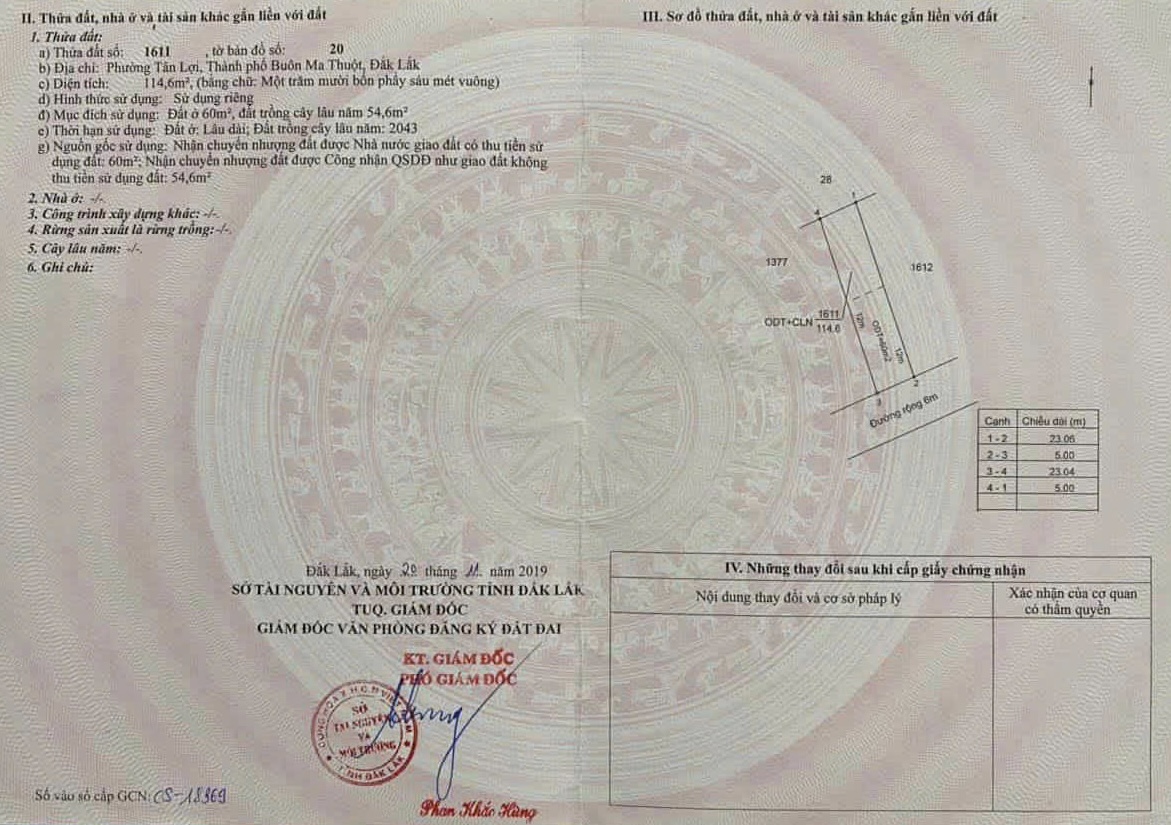 II. Thửa đất, nhà ở và tài sản khác gắn liền với đất
1. Thửa đất:
a) Thửa đất số: 1611 , tờ bản đồ số: 20
b) Địa chỉ: Phường Tân Lợi, Thành phố Buôn Ma Thuột, Đắk Lắk
c) Diện tích: 114,6m², (bằng chữ: Một trăm mười bốn phẩy sáu mét vuông)
d) Hình thức sử dụng: Sử dụng riêng
đ) Mục đích sử dụng: Đất ở 60m², đất trồng cây lâu năm 54,6m²
e) Thời hạn sử dụng: Đất ở: Lâu dài; Đất trồng cây lâu năm: 2043
g) Nguồn gốc sử dụng: Nhận chuyển nhượng đất được Nhà nước giao đất có thu tiền sử
dụng đất: 60m²; Nhận chuyển nhượng đất được Công nhận QSDĐ như giao đất không
thu tiền sử dụng đất: 54,6m²
2. Nhà ở: -/-.
3. Công trình xây dựng khác: -/-.
4. Rừng sản xuất là rừng trồng: -/-.
5. Cây lâu năm: -/-.
6. Ghi chú:
Đắk Lắk, ngày 20 tháng 11 năm 2019
SỞ TÀI NGUYÊN VÀ MÔI TRƯỜNG TỈNH ĐẮK LẮK
TUQ. GIÁM ĐỐC
GIÁM ĐỐC VĂN PHÒNG ĐĂNG KÝ ĐẤT ĐAI
KT. GIÁM ĐỐC
PHÓ GIÁM ĐỐC
CỘNG HÒA X.H.C.N VIỆT NAM
SỞ
TÀI NGUYÊN
VÀ
MÔI TRƯỜNG
TỈNH ĐẮK LẮK
Phan Khắc Hùng
Số vào sổ cấp GCN: CS-18369
III. Sơ đồ thửa đất, nhà ở và tài sản khác gắn liền với đất
28
1
4
1377
1612
ODT+CLN 1611
114.6
12m
ODT=60m2
12m
2
3
Đường rộng 6m
Cạnh Chiều dài (m)
1 - 2 23.06
2 - 3 5.00
3 - 4 23.04
4 - 1 5.00
IV. Những thay đổi sau khi cấp giấy chứng nhận
Nội dung thay đổi và cơ sở pháp lý
Xác nhận của cơ quan
có thẩm quyền